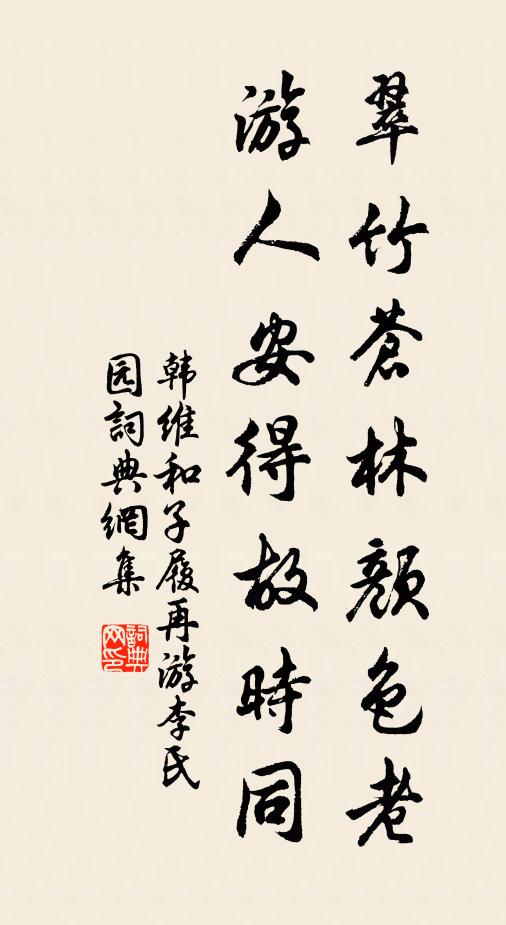 翠竹蒼林顏色老
游人安得故時同
韩維和子履再游李氏
园詞典網集
詞典网印